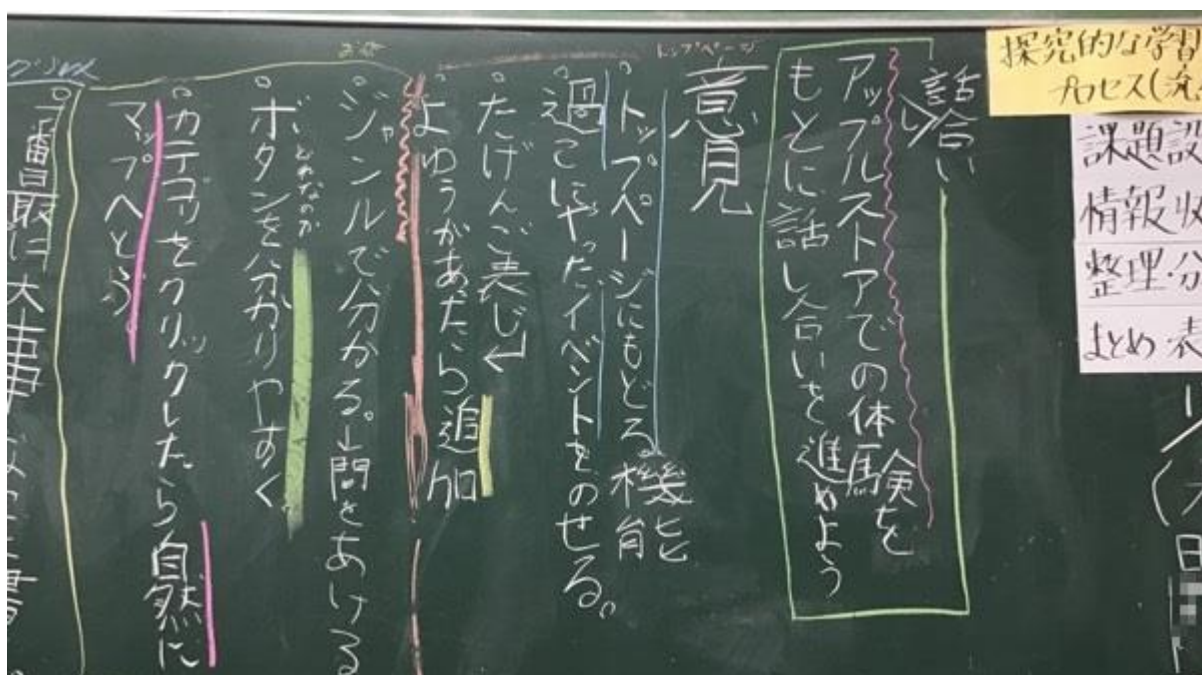 探究的な学習
プロセス(流
課題設
情報収
整理・分
まとめ・表
日
話し合い
アップルストアでの体験を
もとに話し合いを進めよう
トップページ
意見
・トップページにもどる機能
・過こにやったイベントをのせる。
・たげんご表じ
よゆうがあたら追加
・ジャンルで分かる。→間をあける
どれなのか
・ボタンを分かりやすく
・カテゴリをクリックしたら自然に
マップへとう
番最に大事